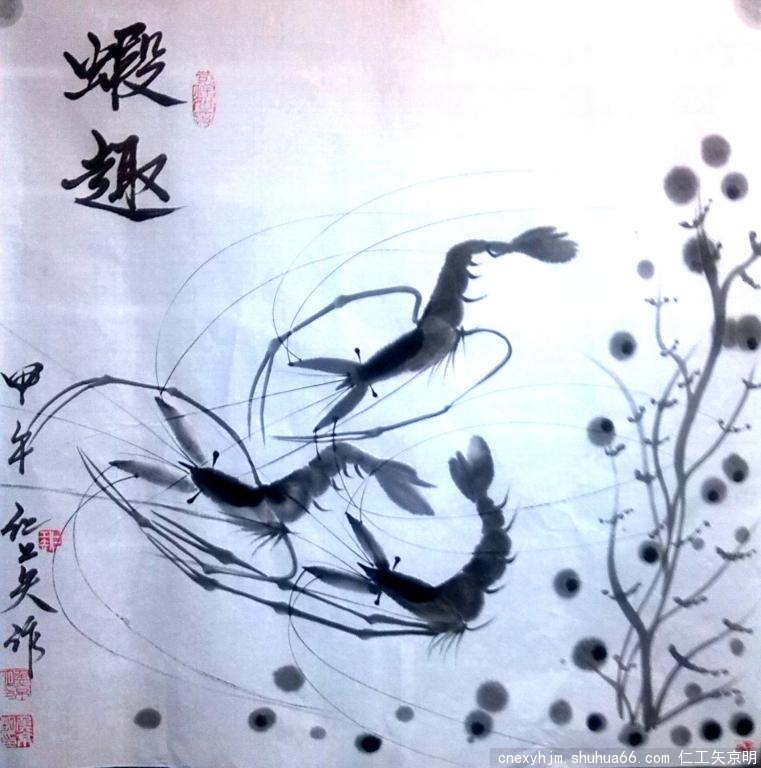 蝦趣
甲午 仁工矢作
cnexyhjm.shuhua66.com 仁工矢京明